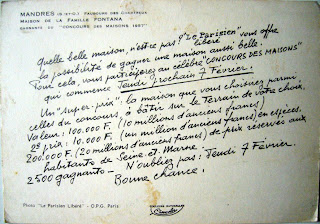 MANDRES (S-et-O.)
MAISON DE LA FAMILLE FONTANA
GAGNANTE DU "CONCOURS DES MAISONS 1957"
Quelle belle maison, n'est-ce pas ? "Le Parisien libéré" vous offre
la possibilité de gagner une maison aussi belle.
Pour cela, vous participerez au célèbre "CONCOURS DES MAISONS"
qui commence Jeudi prochain 7 Février.
Un "super-prix", la maison que vous choisirez parmi
celles du concours, à bâtir sur le terrain de votre choix.
Valeur : 100.000 F. (10 millions d'anciens francs)
2è prix : 10.000 F. (un million d'anciens francs) en espèces.
200.000 F. (20 millions d'anciens francs) de prix réservés aux
habitants de Seine-et-Marne.
2500 gagnants - N'oubliez pas : Jeudi 7 Février.
Bonne chance !
Photo "Le Parisien Libéré" - O.P.G. Paris.